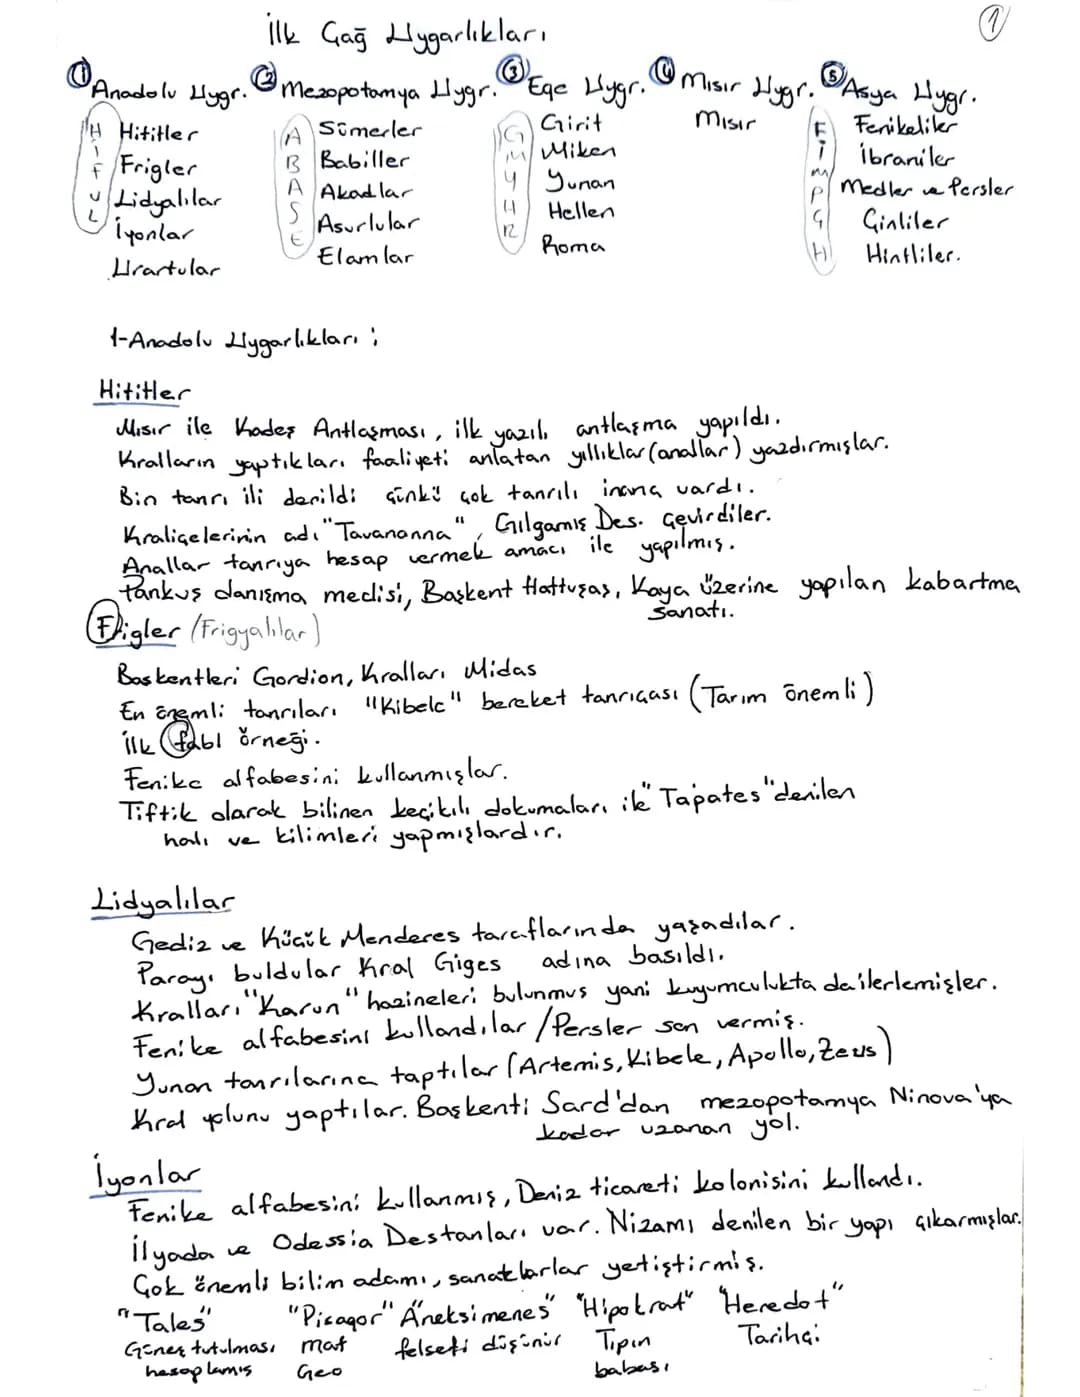 İlk Çağ Uygarlıkları
1
① Anadolu Uygr. ② Mezopotamya Uygr. ③ Ege Uygr. ④ Mısır Uygr. ⑤ Asya Uygr.
H Hititler
i Frigler
f Lidyalılar
U İyonlar
L Urartular
A Sümerler
B Babiller
A Akadlar
S Asurlular
E Elamlar
G Girit
M Miken
Y Yunan
H Hellen
R Roma
Mısır
F Fenikeliler
İ İbraniler
M P Medler ve Persler
Ç Çinliler
H Hintliler.
1-Anadolu Uygarlıkları ;
Hititler
Mısır ile Kadeş Antlaşması, ilk yazılı antlaşma yapıldı.
Kralların yaptıkları faaliyeti anlatan yıllıklar (anallar) yazdırmışlar.
Bin tanrı ili denildi çünkü çok tanrılı inanç vardı.
Kraliçelerinin adı "Tavananna", Gılgamış Des. Çevirdiler.
Anallar tanrıya hesap vermek amacı ile yapılmış.
Pankuş danışma meclisi, Başkent Hattuşaş, Kaya üzerine yapılan kabartma
sanatı.
Frigler (Frigyalılar)
Baskentleri Gordion, Kralları Midas
En önemli tanrıları "Kibele" bereket tanrıçası (Tarım önemli)
ilk fabl örneği.
Fenike alfabesini kullanmışlar.
Tiftik olarak bilinen keçikılı dokumaları ile "Tapates" denilen
halı ve kilimleri yapmışlardır.
Lidyalılar
Gediz ve Küçük Menderes taraflarında yaşadılar.
Parayı buldular Kral Giges adına basıldı.
Kralları "Karun" hazineleri bulunmus yani kuyumculukta da ilerlemişler.
Fenike alfabesini kullandılar /Persler son vermiş.
Yunan tanrılarına taptılar (Artemis, Kibele, Apollo, Zeus)
Kral yolunu yaptılar. Başkenti Sard'dan mezopotamya Ninova'ya
kadar uzanan yol.
İyonlar
Fenike alfabesini kullanmış, Deniz ticareti kolonisini kullandı.
İlyada ve Odessia Destanları var. Nizamı denilen bir yapı çıkarmışlar.
Çok önemli bilim adamı, sanatkarlar yetiştirmiş.
"Tales" "Picagor" "Aneksimenes" "Hipokrat" "Heredot"
Güneş tutulması mat felsefi düşünür Tıpın Tarihçi
hesaplamış Geo babası